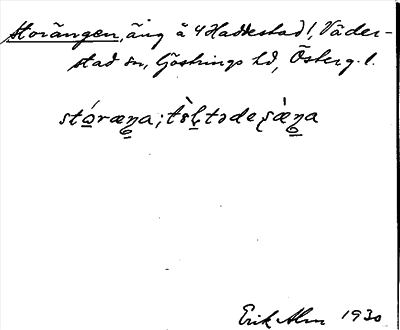 Storängen, äng å 4 Haddestad /, Väder-
stad sn, Göstrings hd, Österg. l.
stóræŋa;
Erik Alm 1930